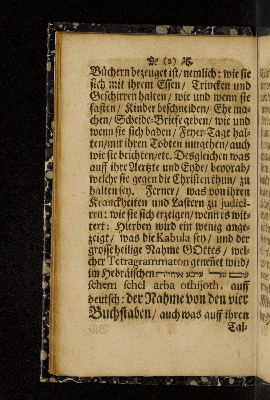 (2)
Büchern bezeuget ist/ nemlich: wie sie
sich mit ihrem Essen/ Trincken und
Geschirren halten/ wie und wenn sie
fasten/ Kinder beschneiden/ Ehe ma-
chen/ Scheide-Briefe geben/ wie und
wenn sie sich baden/ Feyer-Tage hal-
ten/ mit ihren Todten umgehen/ auch
wie sie beichten/ etc. Desgleichen was
auff ihre Aertzte und Eyde/ bevorab/
welche sie gegen die Christen thun/ zu
halten sey. Ferner/ was von ihren
Kranckheiten und Lastern zu judici-
ren: wie sie sich erzeigen/ wenn es wit-
tert: Hierben wird ein wenig ange-
zeigt/ was die Kabula sey/ und der
grosse heilige Nahme GOttes/ wel-
cher Tetragrammaton genennet wird/
im Hebräischen שם של ארבע אותיות
schem schel arba othijoth, auff
deutsch: der Nahme von den vier
Buchstaben/ auch was auff ihren
Tal-